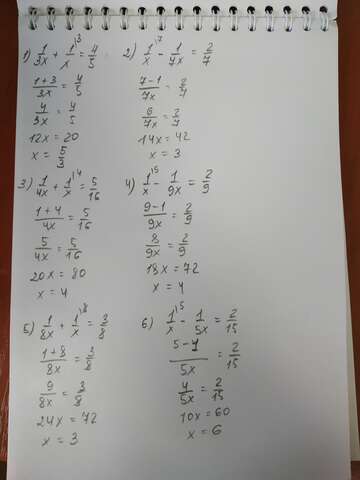 1) 1/3x + 1/x\3 = 4/5
(1+3)/3x = 4/5
4/3x = 4/5
12x = 20
x = 5/3
2) 1/x\7 - 1/7x = 2/7
(7-1)/7x = 2/7
6/7x = 2/7
14x = 42
x = 3
3) 1/4x + 1/x\4 = 5/16
(1+4)/4x = 5/16
5/4x = 5/16
20x = 80
x = 4
4) 1/x\9 - 1/9x = 2/9
(9-1)/9x = 2/9
8/9x = 2/9
18x = 72
x = 4
5) 1/8x + 1/x\8 = 3/8
(1+8)/8x = 3/8
9/8x = 3/8
24x = 72
x = 3
6) 1/x\5 - 1/5x = 2/15
(5-1)/5x = 2/15
4/5x = 2/15
10x = 60
x = 6